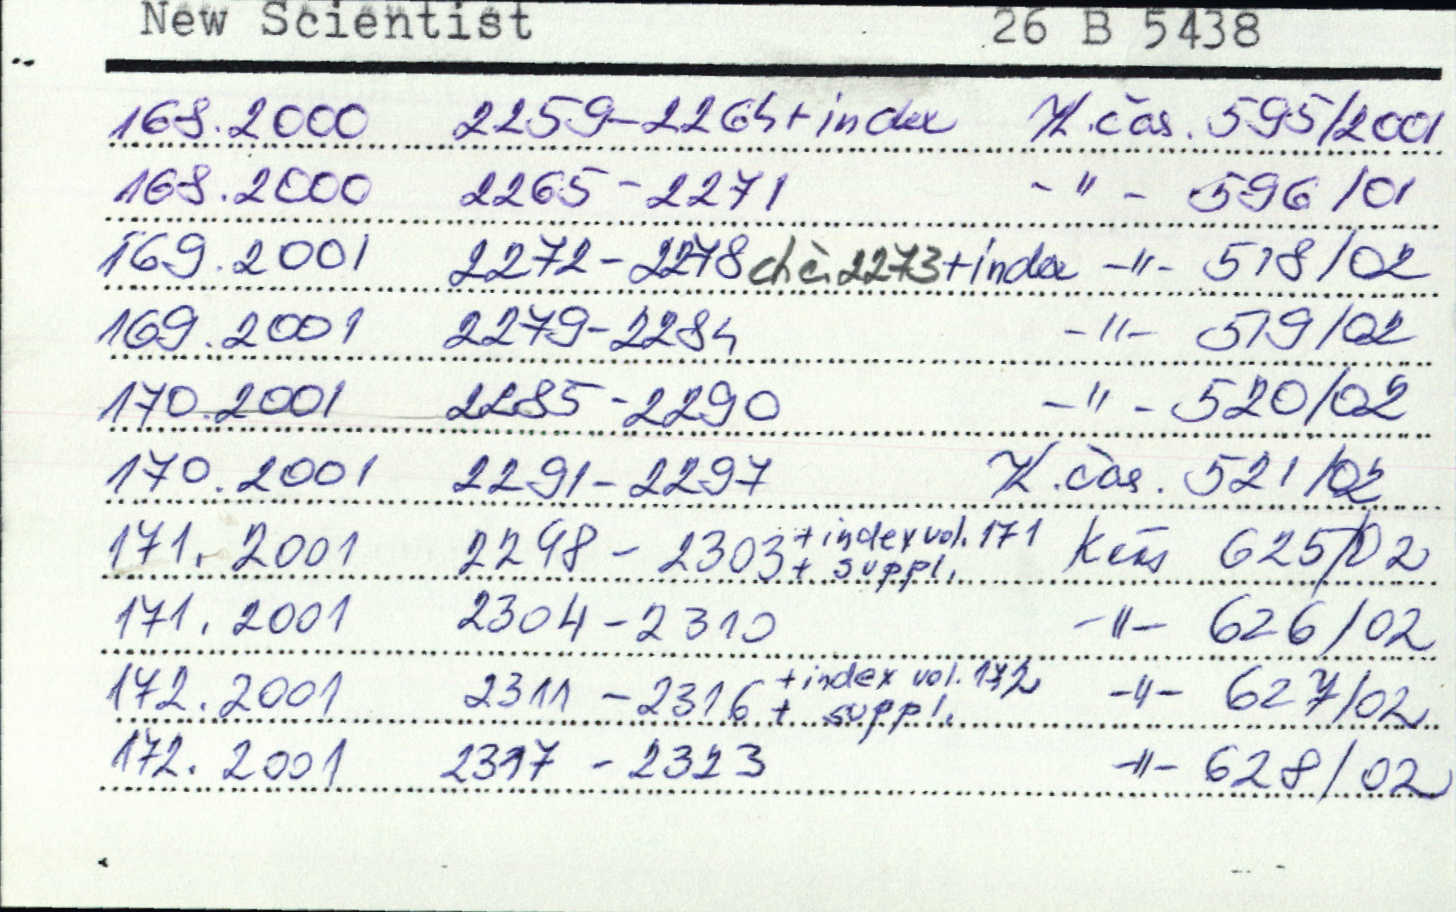 New Scientist 26 B 5438
168.2000 2259-2264+index K.čas. 595/2001
168.2000 2265-2271 -"- 596/01
169.2001 2272-2278 chč. 2273+index -"- 518/02
169.2001 2279-2284 -"- 519/02
170.2001 2285-2290 -"- 520/02
170.2001 2291-2297 K.čas. 521/02
171. 2001 2298 - 2303 + index vol. 171 + suppl. Kčas 625/02
171. 2001 2304 - 2310 -"- 626/02
172. 2001 2311 - 2316 + index vol. 172 + suppl. -"- 627/02
172. 2001 2317 - 2323 -"- 628/02